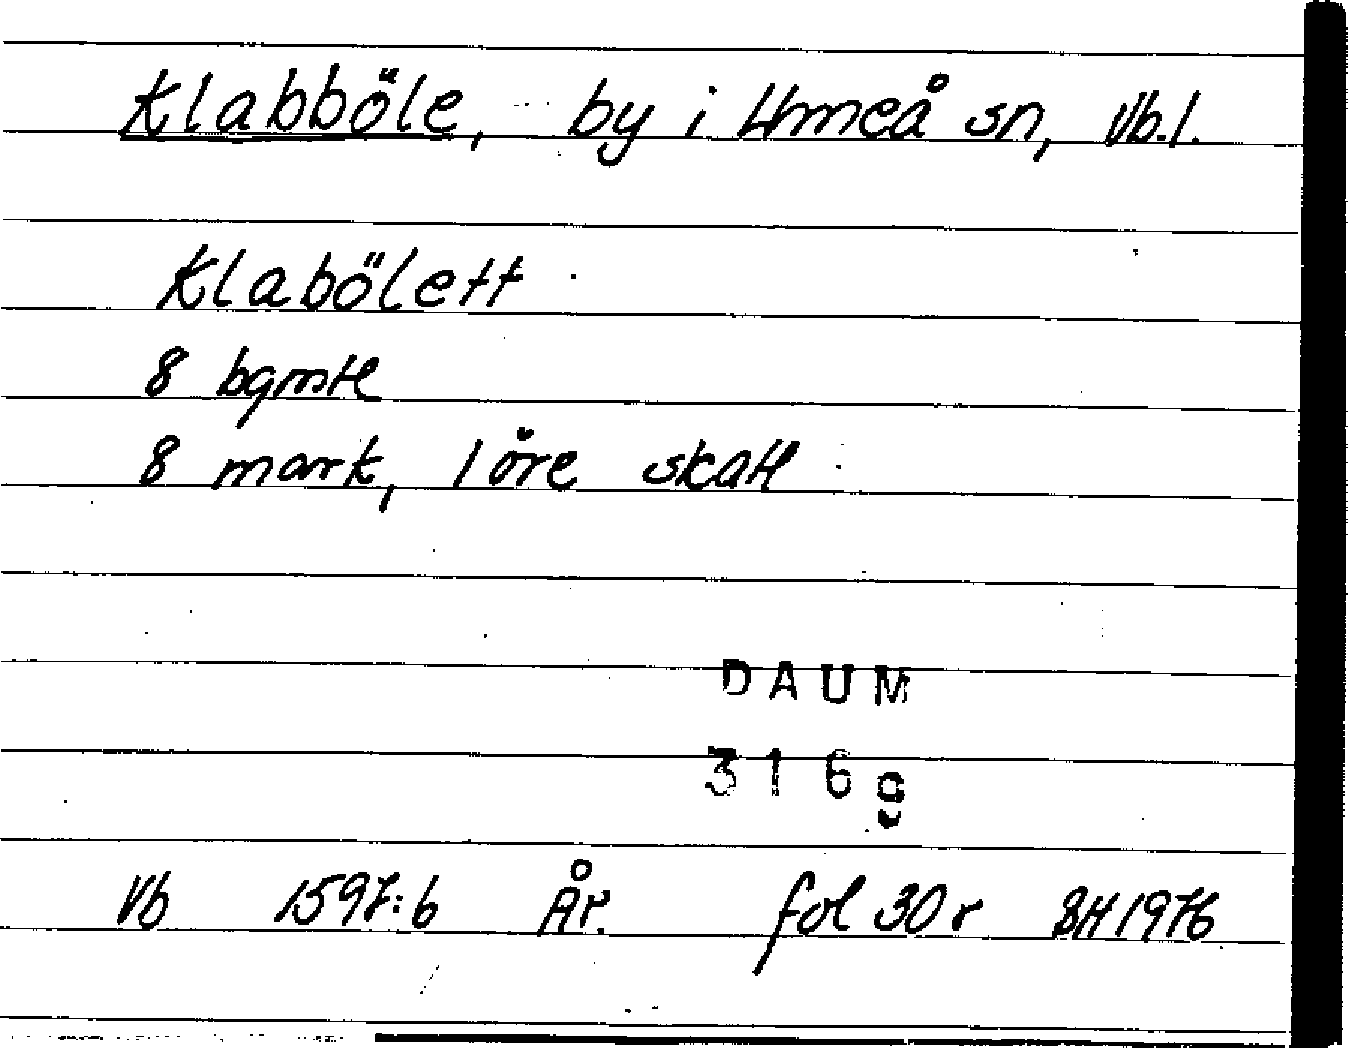 Klabböle, by i Umeå sn, Vb.l.
Klabölett
8 bgmtl
8 mark, 1 öre skatt
DAUM
316g
Vb 1597:6 År. fol 30 r BH 1976